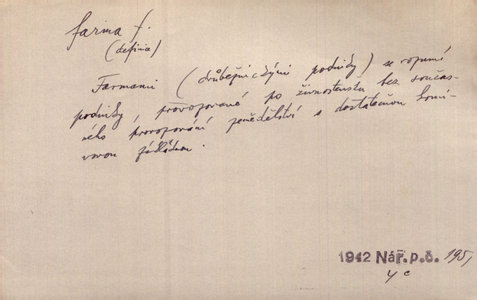 farma f.
(definice)
Farmami (drůbežnickými podniky) se rozumí
podniky, provozované po živnostensku bez součas-
ného provozování zemědělství s dostatečnou krmi-
vovou základnou.
1942 Nář. p. č. 195,
4 c